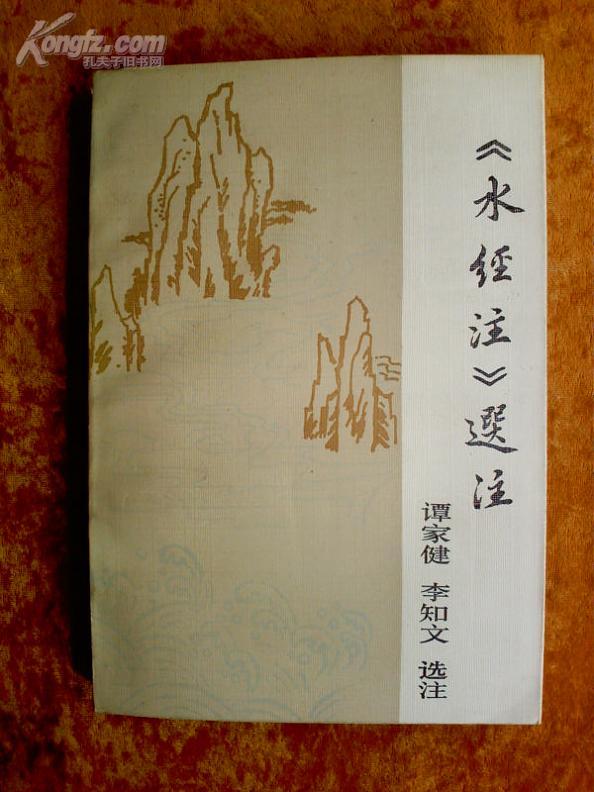 Kongfz.com
孔夫子旧书网
《水经注》選注
谭家健 李知文 选注